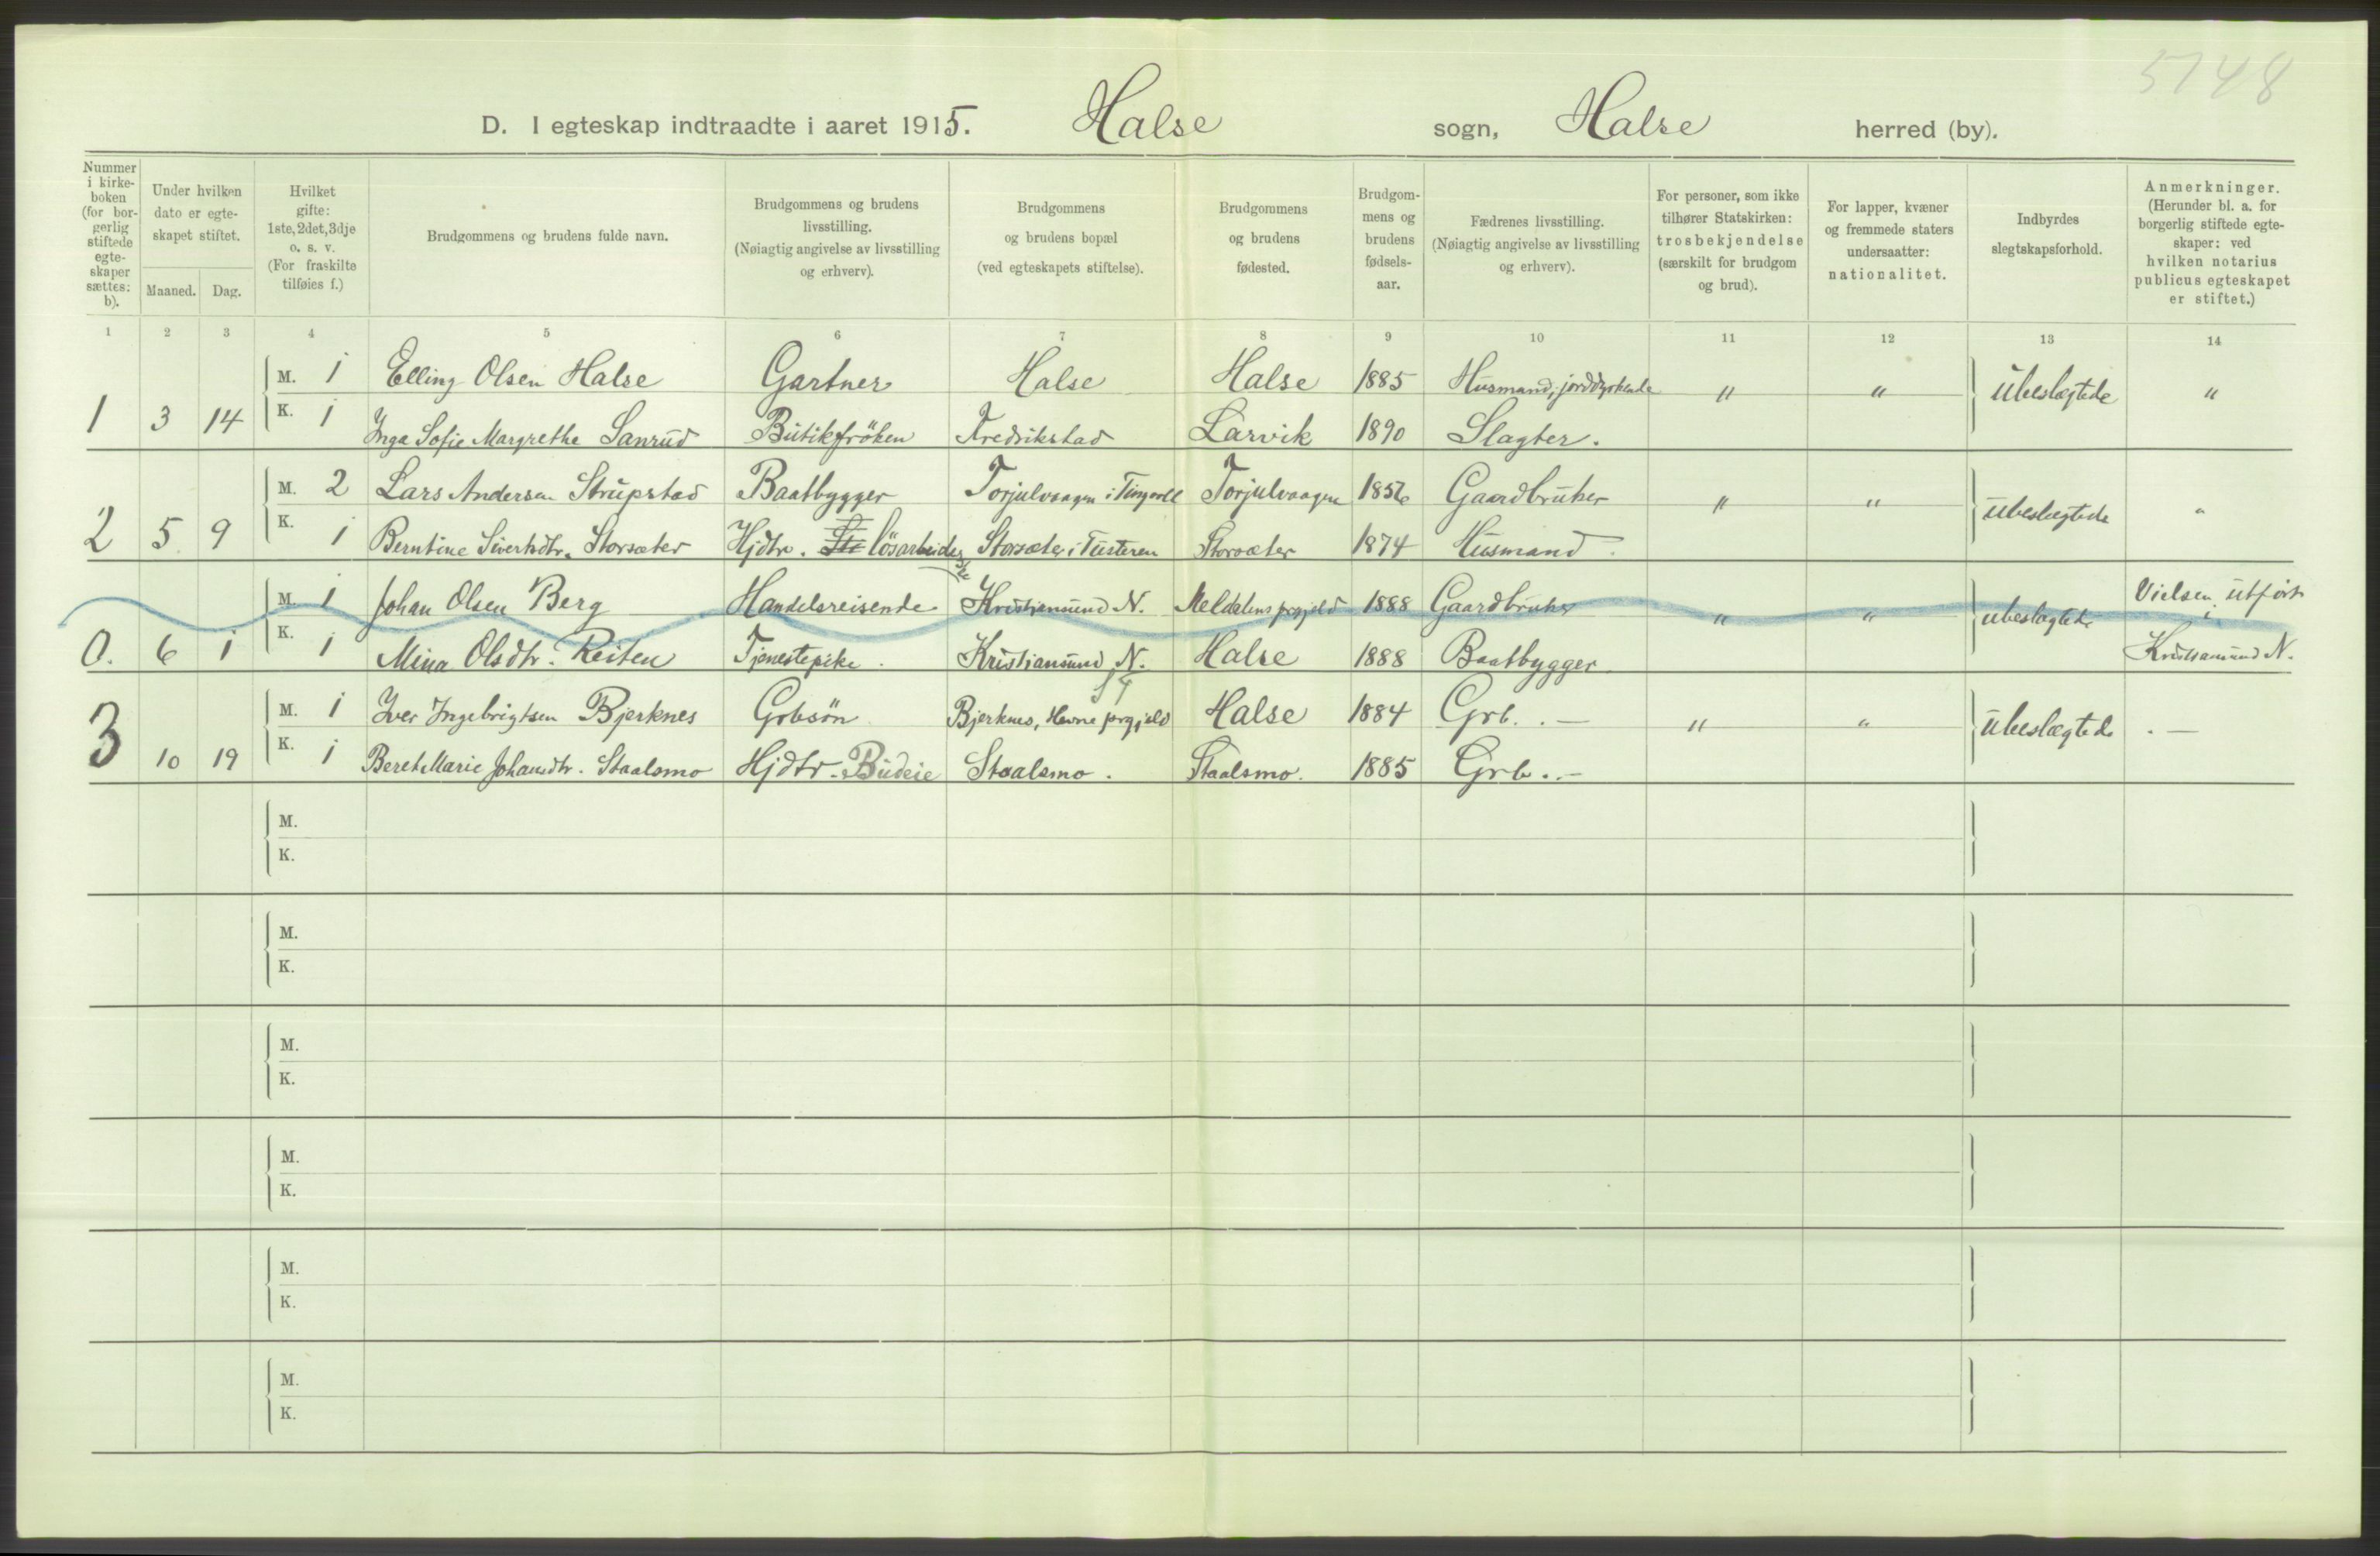 5748
D. I egteskap indtraadte i aaret 1915. Halse sogn, Halse herred (by).
Nummer i kirkeboken (for borgerlig stiftede egteskaper sættes: b).
Under hvilken dato er egteskapet stiftet.
Maaned. Dag.
Hvilket gifte: 1ste, 2det, 3dje o. s. v. (For fraskilte tilføies f.)
Brudgommens og brudens fulde navn.
Brudgommens og brudens livsstilling. (Nøiagtig angivelse av livsstilling og erhverv).
Brudgommens og brudens bopæl (ved egteskapets stiftelse).
Brudgommens og brudens fødested.
Brudgommens og brudens fødselsaar.
Fædrenes livsstilling. (Nøiagtig angivelse av livsstilling og erhverv).
For personer, som ikke tilhører Statskirken: trosbekjendelse (særskilt for brudgom og brud).
For lapper, kvæner og fremmede staters undersaatter: nationalitet.
Indbyrdes slegtskapsforhold.
Anmerkninger. (Herunder bl. a. for borgerlig stiftede egteskaper: ved hvilken notarius publicus egteskapet er stiftet.)
1 2 3 4 5 6 7 8 9 10 11 12 13 14
M. 1 Elling Olsen Halse Gartner Halse Halse 1885 Husmand, jorddyrkende " " Ubeslægtede "
1 3 14 K. 1 Inga Sofie Margrethe Sanrud Butikfröken Fredrikstad Larvik 1890 Slagter.
M. 2 Lars Andersen Strupstad Baatbygger Torjulvaagen i Tingvoll Torjulvaagen 1856 Gaardbruker " " Ubeslegtede "
2 5 9 K. 1 Berntine Sivertsdtr. Storsæter Hjdtr. lösarbeiderske Storsæter i Tusteren Storsæter 1874 Husmand.
M. 1 Johan Olsen Berg Handelsreisende Kristiansund N. Meldalens prgjeld 1888 Gaardbruker " " ubeslægtede Vielsen utført i
0. 6 1 K. 1 Mina Olsdtr. Reiten Tjenestepike. Kristiansund N. Halse 1888 Baatbygger Kristiansund N.
M. 1 Iver Ingebrigtsen Bjerknes Grbsön Bjerknes, Hevne prgjeld Halse 1884 Grb. . — " " Ubeslægtede . —
3 10 19 K. 1 Beret Marie Johansdtr. Staalsmo Hjdtr. Budeie Staalsmo. Staalsmo. 1885 Grb. . –
M.
K.
M.
K.
M.
K.
M.
K.
M.
K.
M.
K.